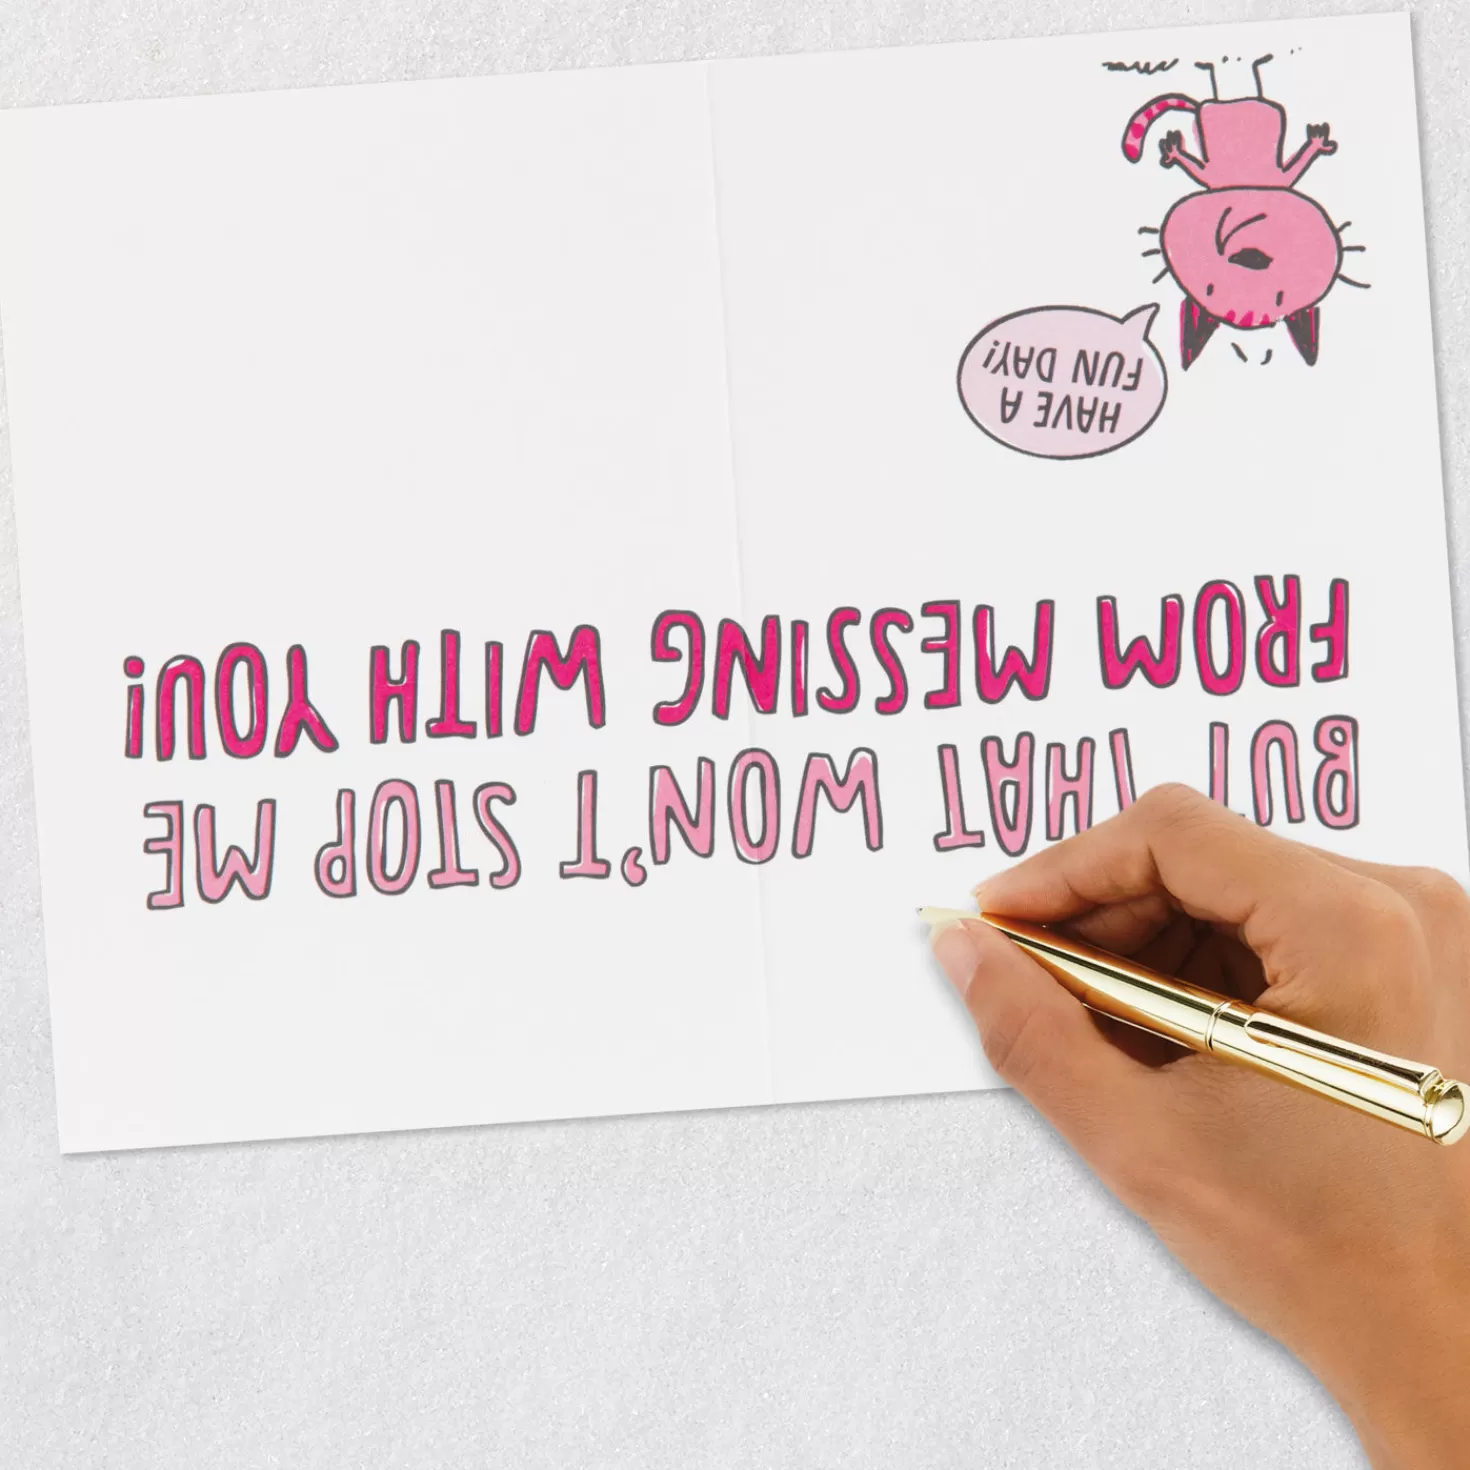 BUT THAT WON'T STOP ME
FROM MESSING WITH YOU!
HAVE A
FUN DAY!